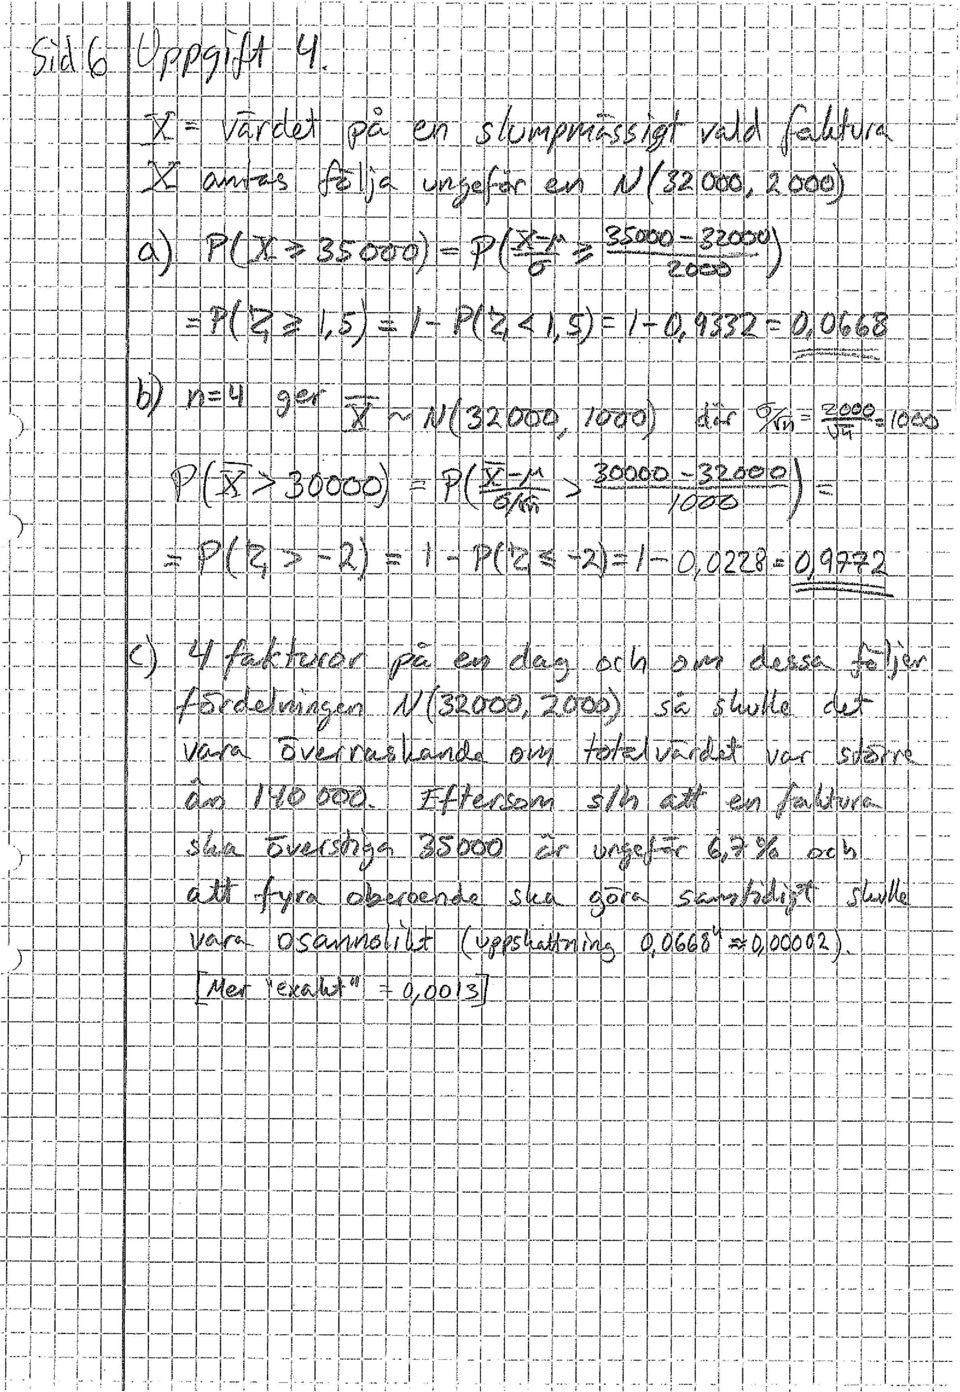 Sid 6 Uppgift 4.
X = värdet på en slumpmässigt vald faktura
X antas följa ungefär en N(32 000, 2 000)
a) P(X ≥ 35000) = P((X-μ)/σ ≥ (35000-32000)/2000)
= P(Z ≥ 1,5) = 1 - P(Z < 1,5) = 1 - 0,9332 = 0,0668
b) n=4 ger X̄ ~ N(32000, 1000) där σ/√n = 2000/√4 = 1000
P(X̄ > 30000) = P((X̄-μ)/(σ/√n) > (30000-32000)/1000) =
= P(Z > -2) = 1 - P(Z ≤ -2) = 1 - 0,0228 = 0,9772
c) 4 fakturor på en dag och om dessa följer
fördelningen N(32000, 2000) så skulle det
vara överraskande om totalvärdet var större
än 140 000. Eftersom slh att en faktura
ska överstiga 35000 är ungefär 6,7 % och
att fyra oberoende ska göra samtidigt skulle
vara osannolikt (uppskattning 0,0668⁴ ≈ 0,00002).
[Mer "exakt" = 0,0013]